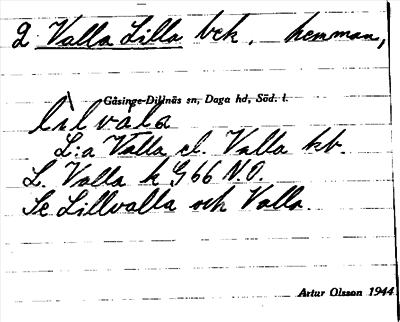 2 Valla Lilla bek. hemman,
Gåsinge-Dillnäs sn, Daga hd, Söd. l.
lìlvàla
L:a Valla el. Valla kb.
L. Valla k G66 N.O.
Se Lillvalla och Valla.
Artur Olsson 1944.